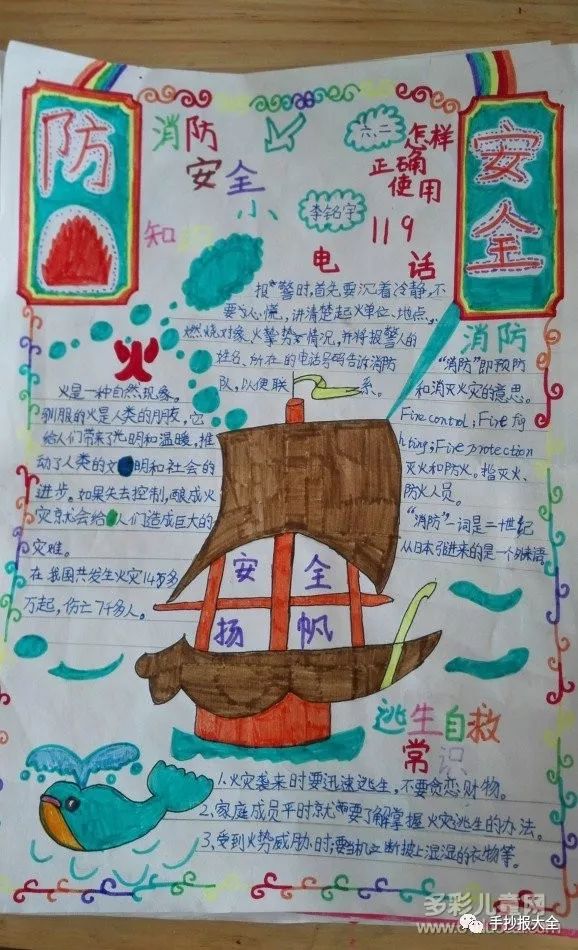 防
安全
消防
安全
小
知识
六.二
李铭宇
怎样
正确
使用
119
电话
报警时,首先要沉着冷静,不
要心慌,讲清楚起火单位、地点、
燃烧对象、火势情况,并将报警人的
姓名、所在的电话号码告诉消防
队,以便联系。
火
火是一种自然现象。
驯服的火是人类的朋友,它
给人们带来了光明和温暖,推
动了人类的文明和社会的
进步。如果失去控制,酿成火
灾就会给人们造成巨大的
灾难。
在我国共发生火灾14万多
万起,伤亡7千多人。
消防
"消防"即预防
和消灭火灾的意思。
Fire control;Fire fig
hting;Fire protection
灭火和防火。指灭火、
防火人员。
"消防"一词是二十世纪
从日本引进来的是一个外来语
安全
扬帆
逃生自救
常识
1、火灾袭来时要迅速逃生,不要贪恋财物。
2、家庭成员平时就要了解掌握火灾逃生的办法。
3、受到火势威胁时,要当机立断披上湿湿的衣物等。
多彩儿童网
手抄报大全